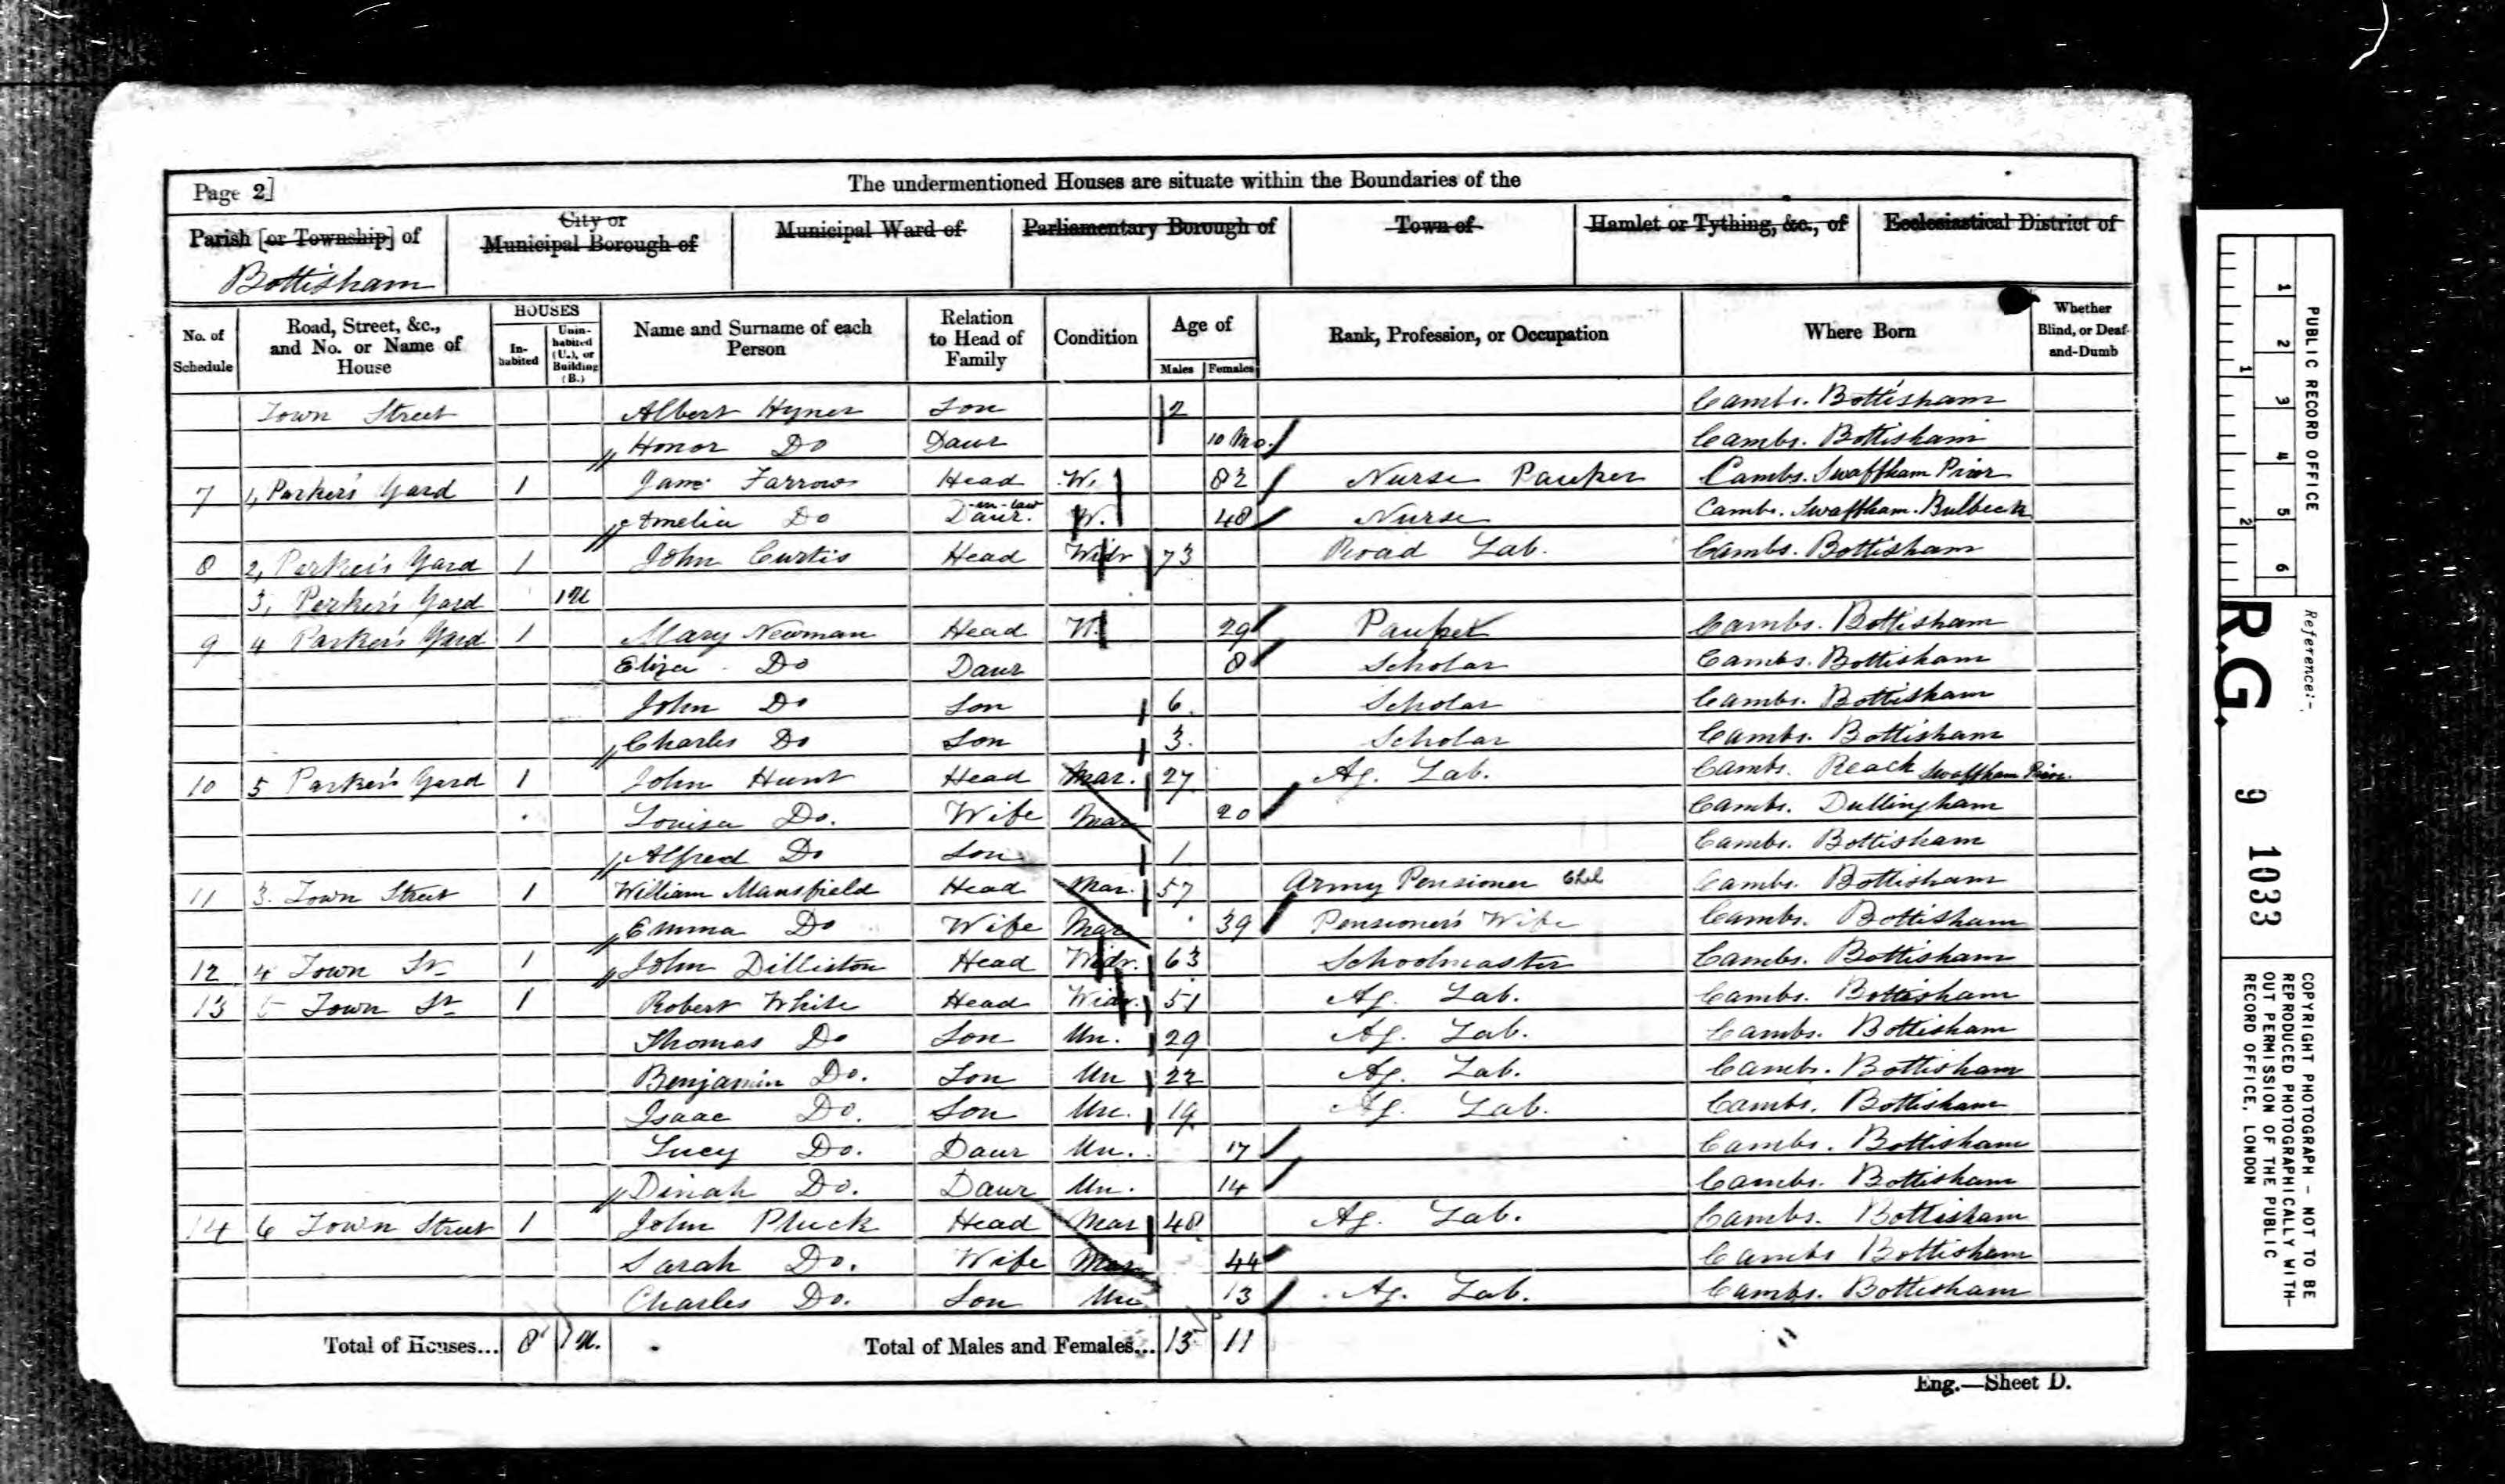 Page 2]
The undermentioned Houses are situate within the Boundaries of the
Parish [or Township] of
Bottisham
City or
Municipal Borough of
Municipal Ward of
Parliamentary Borough of
Town of
Hamlet or Tything, &c., of
Ecclesiastical District of
No. of
Schedule
Road, Street, &c.,
and No. or Name of
House
HOUSES
In-
habited
Unin-
habited
(U.), or
Building
(B.)
Name and Surname of each
Person
Relation
to Head of
Family
Condition
Age of
Males Females
Rank, Profession, or Occupation
Where Born
Whether
Blind, or Deaf-
and-Dumb
Town Street Albert Hyner Son 2 Cambs. Bottisham
Honor Do Daur 10 Mo. Cambs. Bottisham
7 1, Parker's Yard 1 Jane Farrow Head W. 82 Nurse Pauper Cambs. Swaffham Prior
Amelia Do Daur. in-law W. 48 Nurse Cambs. Swaffham. Bulbeck
8 2, Parker's Yard 1 John Curtis Head Widr 73 Road Lab. Cambs. Bottisham
3, Parker's Yard 1 U
9 4 Parker's Yard 1 Mary Newman Head W. 29 Pauper Cambs. Bottisham
Eliza Do Daur 8 Scholar Cambs. Bottisham
John Do Son 6 Scholar Cambs. Bottisham
Charles Do Son 3 Scholar Cambs. Bottisham
10 5 Parker's Yard 1 John Hunt Head Mar. 27 Ag. Lab. Cambs. Reach Swaffham Prior.
Louisa Do. Wife Mar 20 Cambs. Dullingham
Alfred Do Son 1 Cambs. Bottisham
11 3. Town Street 1 William Mansfield Head Mar. 57 Army Pensioner Chel Cambs. Bottisham
Emma Do Wife Mar 39 Pensioner's Wife Cambs. Bottisham
12 4 Town St 1 John Dilliston Head Widr. 63 Schoolmaster Cambs. Bottisham
13 5 Town St 1 Robert White Head Widr. 51 Ag. Lab. Cambs. Bottisham
Thomas Do Son Un. 29 Ag. Lab. Cambs. Bottisham
Benjamin Do. Son Un 22 Ag. Lab. Cambs. Bottisham
Isaac Do. Son Un. 19 Ag. Lab. Cambs. Bottisham
Lucy Do. Daur Un. 17 Cambs. Bottisham
Dinah Do. Daur Un. 14 Cambs. Bottisham
14 6 Town Street 1 John Pluck Head Mar 48 Ag. Lab. Cambs. Bottisham
Sarah Do. Wife Mar 44 Cambs Bottisham
Charles Do. Son Un 13 Ag. Lab. Cambs. Bottisham
Total of Houses... 8 1 U. Total of Males and Females... 13 11
Eng.—Sheet D.
PUBLIC RECORD OFFICE
1 2 3 4 5 6
1 2
Reference:-
R.G. 9 1033
COPYRIGHT PHOTOGRAPH - NOT TO BE
REPRODUCED PHOTOGRAPHICALLY WITH-
OUT PERMISSION OF THE PUBLIC
RECORD OFFICE, LONDON